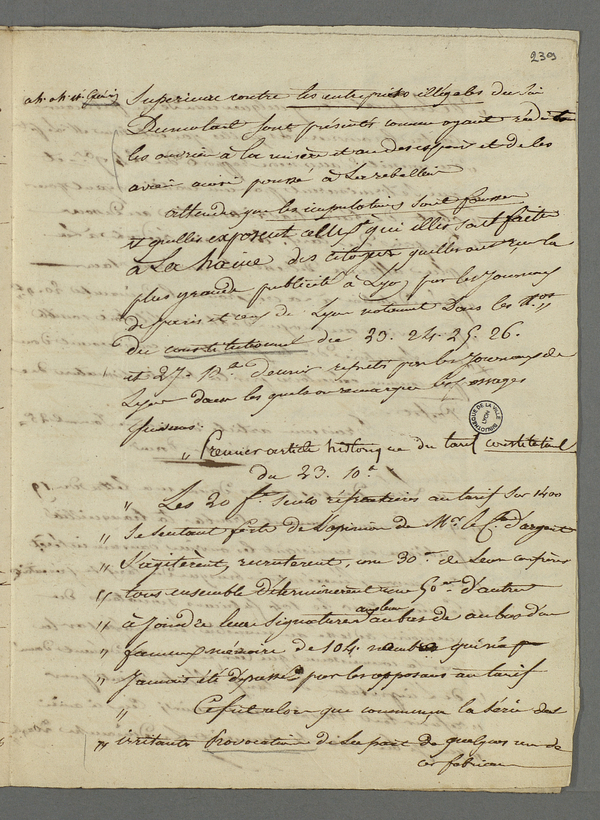 239
Superieure contre les entreprises illégales du Sr
Dumolard sont présentés comme ayant réduit
les ouvriers à la misère et au desespoir et de les
avoir ainsi poussé à la rebellion
attendu que les imputations sont fausses
et qu'elles exposent celles qui elles sont faite
à la haine des citoyens qu'elles ont reçu la
plus grande publicité à Lyon par les Journaux
de paris et ceux de Lyon notament Dans les Nos
du constitutionnel des 23. 24. 25. 26.
et 27. Xbre dernier repetés par les Journaux de
Lyon dans les quels on remarque les passages
suivans:
„ Premier article historique du tarif constitutionel
du 23. Xbre
„ Les 20 fts seuls réfractaires au tarif sur 1400
„ se sentant forts de l'opinion de Mr le Cte d'argout
„ S'agitèrent, recruterent, une 30ne de Leurs confrères
„ tous ensemble déterminerent une 50ne d'autres
„ à Joindre leurs signatures au bas de au bas d'un
„ fameux mémoire de 104. nombre qui n'a
„ Jamais été dépassé par les opposans au tarif
„ Ce fut alors que commença la série des
„ irritantes Provocations de la part de quelques uns de
ces fabricans
BIBLIOTHEQUE DE LA VILLE
LYON